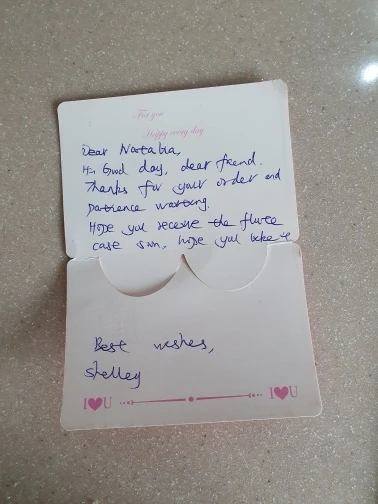 For you
Happy every day
Dear Natalia,
Hi Good day, dear friend.
Thanks for your order and
patience waiting.
Hope you receive the flute
case soon, hope you like it
Best wishes,
Shelley
I♥U I♥U